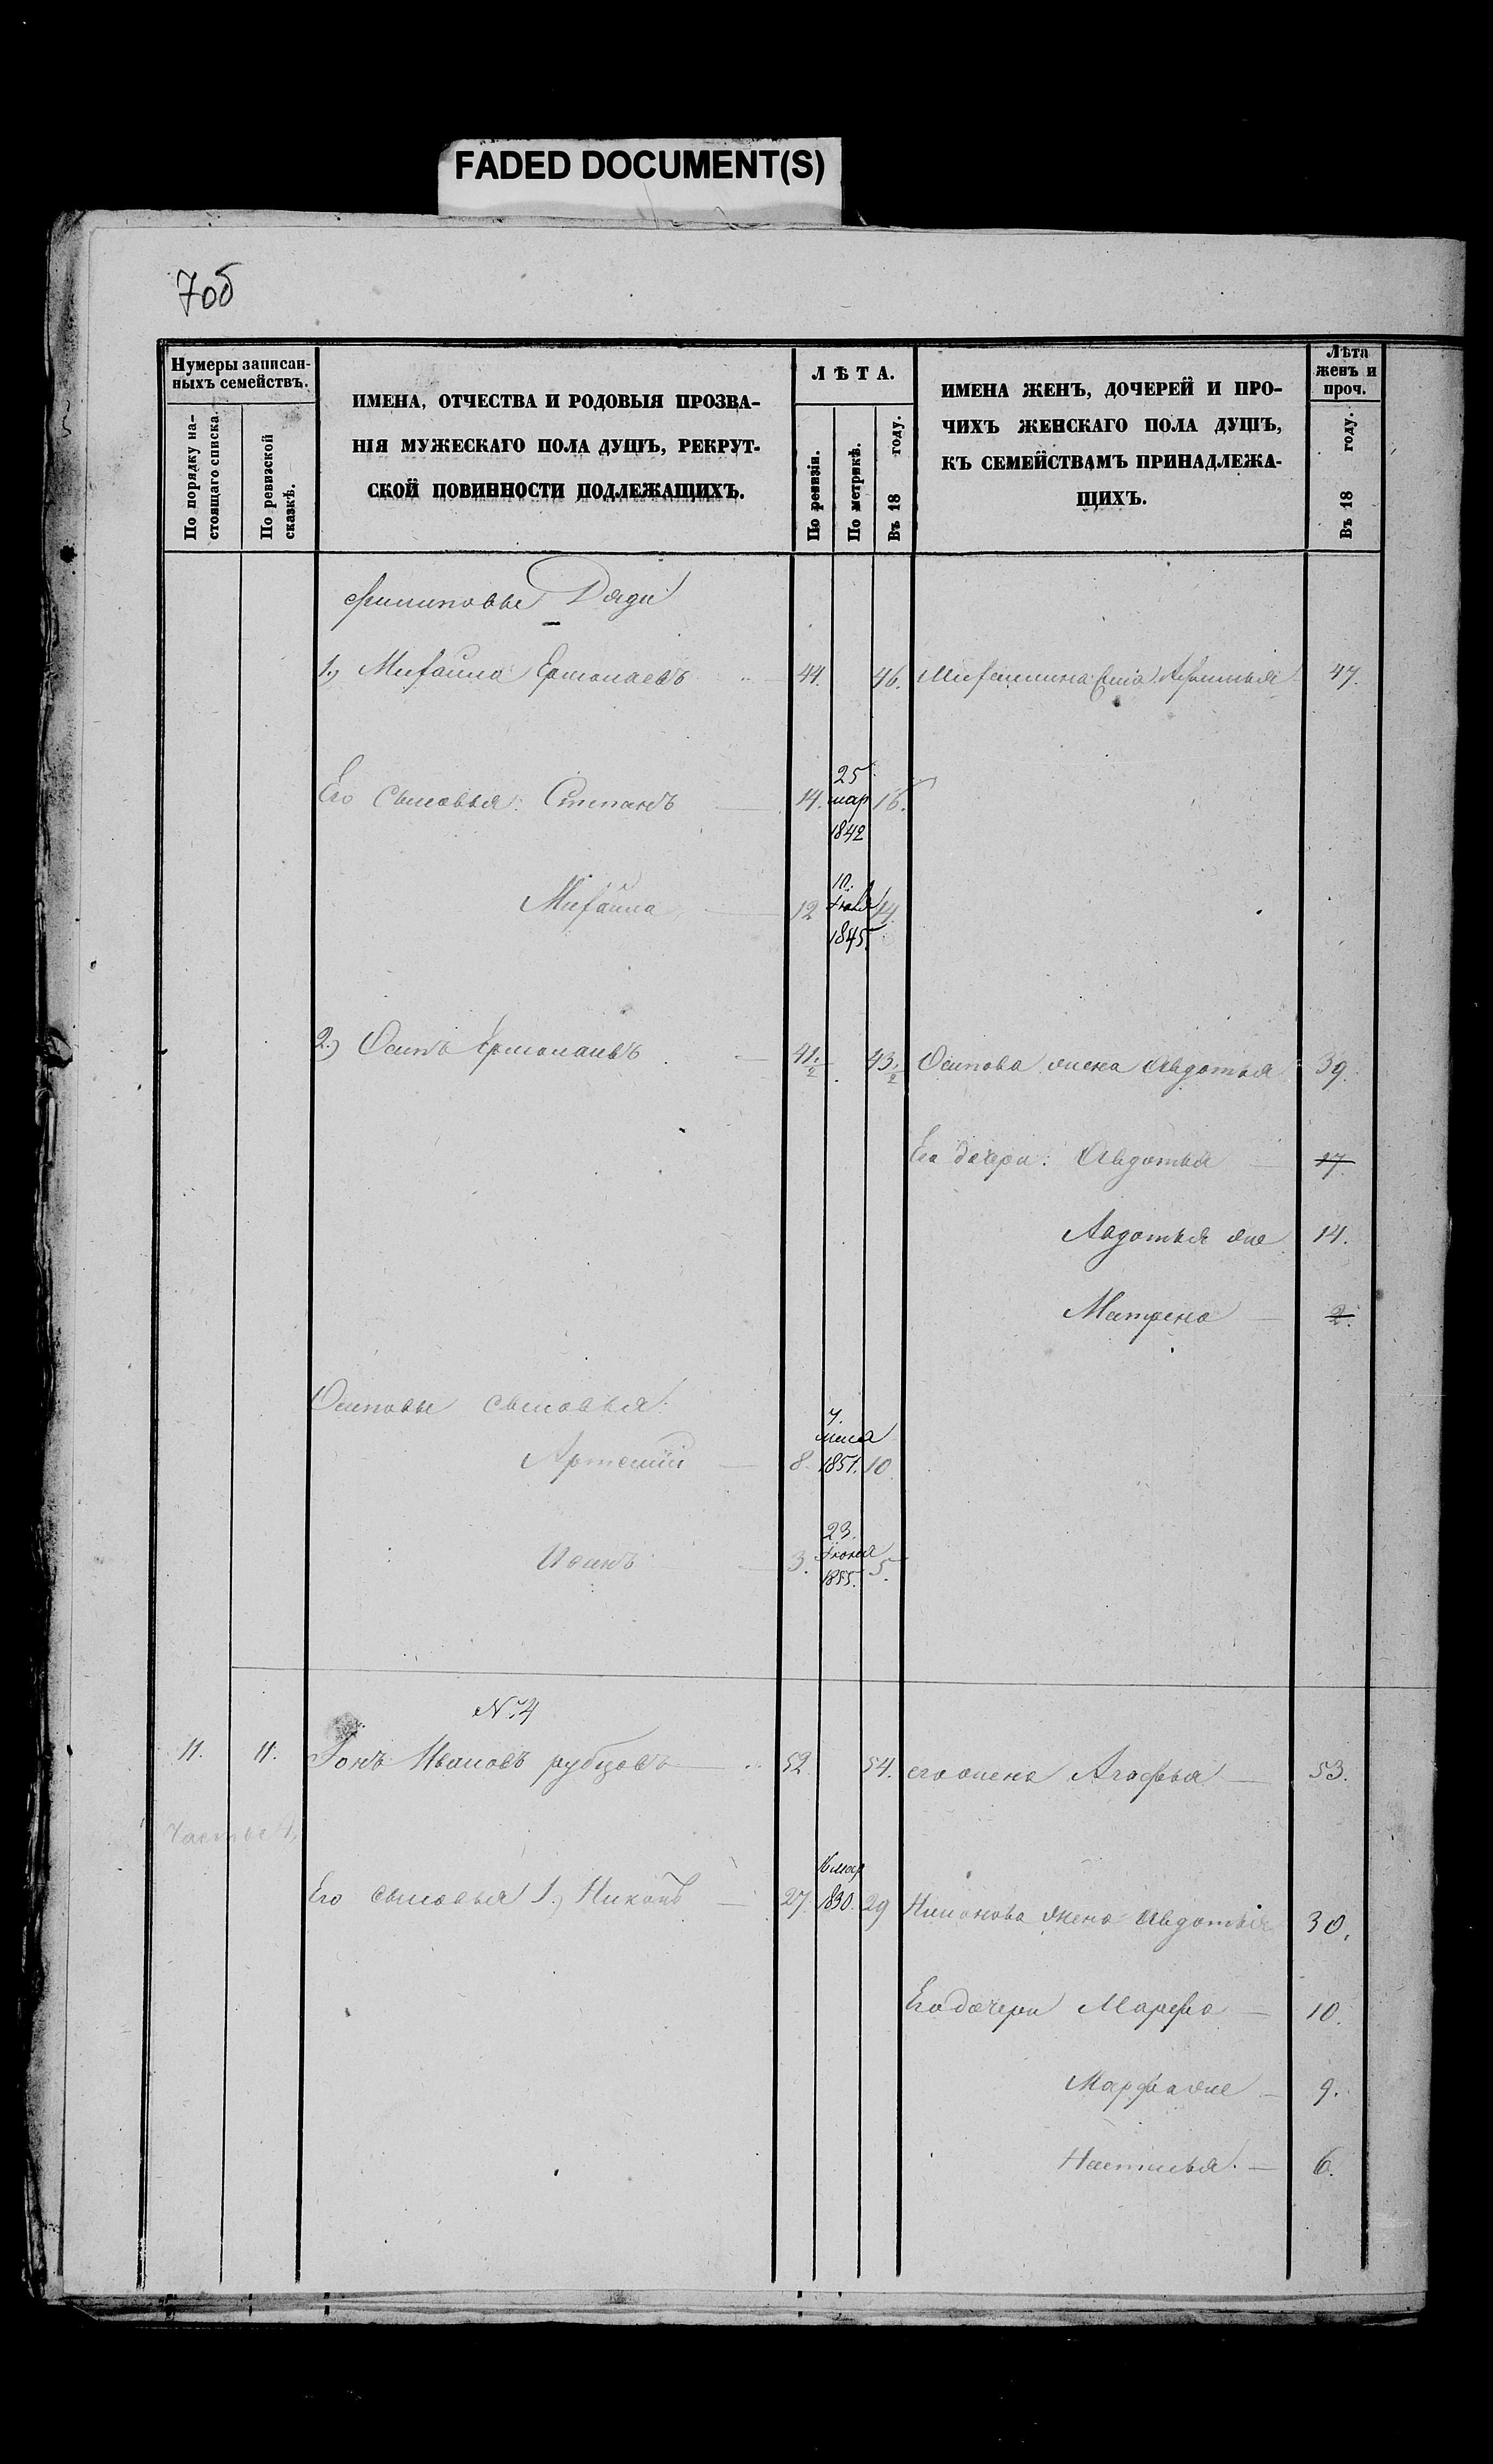 FADED DOCUMENT(S)
70б
Нумеры записан-
ныхъ семействъ.
По порядку на-
стоящаго списка.
По ревизской
сказкѣ.
ИМЕНА, ОТЧЕСТВА И РОДОВЫЯ ПРОЗВА-
НІЯ МУЖЕСКАГО ПОЛА ДУШЪ, РЕКРУТ-
СКОЙ ПОВИННОСТИ ПОДЛЕЖАЩИХЪ.
ЛѢТА.
По ревизіи.
По метрикѣ.
Въ 18 году.
ИМЕНА ЖЕНЪ, ДОЧЕРЕЙ И ПРО-
ЧИХЪ ЖЕНСКАГО ПОЛА ДУШЪ,
КЪ СЕМЕЙСТВАМЪ ПРИНАДЛЕЖА-
ЩИХЪ.
Лѣта
женъ и
проч.
Въ 18 году.
Филиповы Дяди
1.) Михайло Ермолаевъ 44. 46. Михайлина 47.
25
Его Сыновья: Степанъ 14. мар 16.
1842
10.
Михайла 12 14.
1845.
2.) Осипъ Ермолаевъ 41. 1/2 43. 1/2 Осипова жена Авдотья 39.
Его дочери: Авдотья 17.
Авдотья же 14.
Матрена 2.
Осиповы сыновья:
Артемий 8. 1851. 10
23.
Иванъ 3. 1855. 5.
№ 4
11. 11. Іонъ Ивановъ рубцовъ 52 54. его жена Агафья 53.
16 мар
Его сыновья 1.) Никонъ 27. 1830. 29 Никонова жена Авдотья 30.
Его дочери Марфа 10.
Марфа же 9.
Настасья. 6.